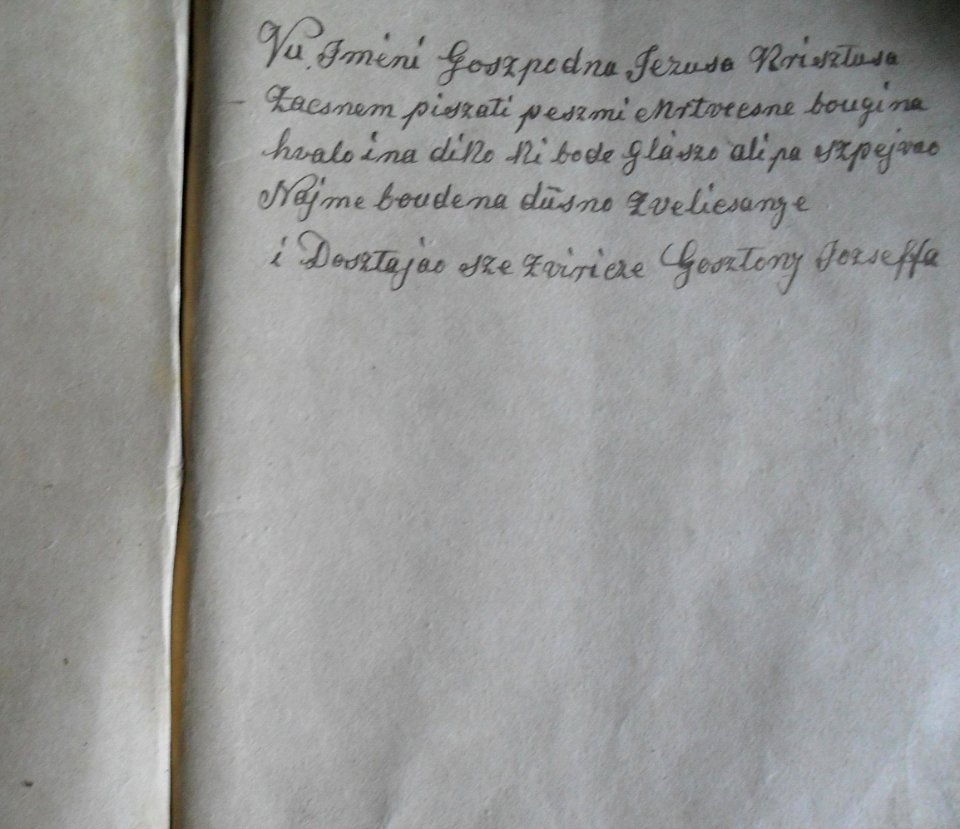 Vu Imeni Goszpodna Jezusa Krisztusa
Zacsnem piszati peszmi Mrtvecsne bougi na
hvalo i na diko ki bode glászo ali pa szpejvao
Naj me boude na düsno zvelicsanye
i Dosztajao sze zviricze Gosztony Jozseffa